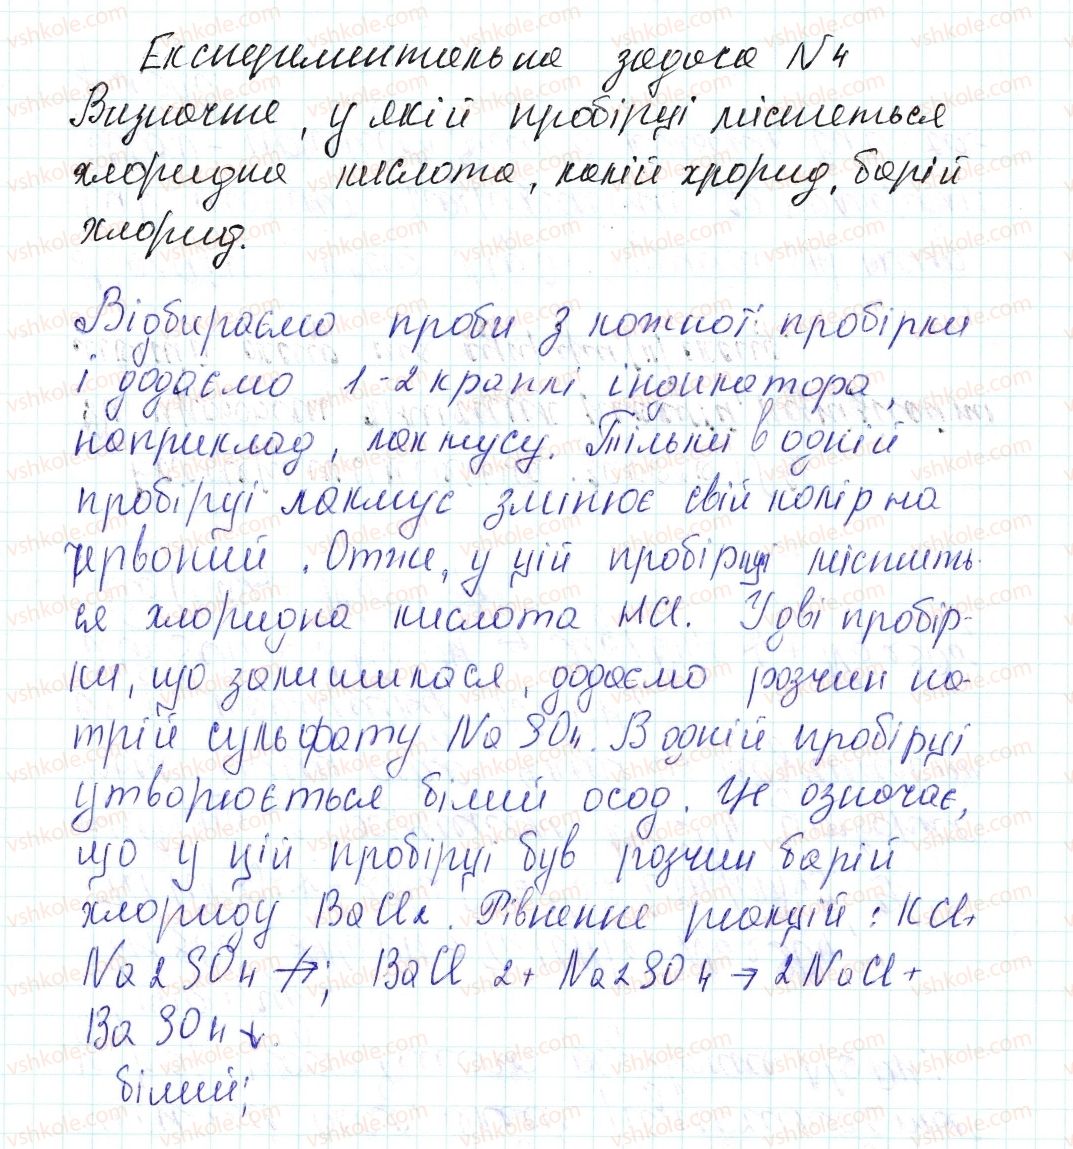 Експериментальна задача N4
Визначте, у якій пробірці міститься
хлоридна кислота, калій хрорид, барій
хлорид.
Відбираємо проби з кожної пробірки
і додаємо 1-2 краплі індикатора,
наприклад, лакмусу. Тільки в одній
пробірці лакмус змінює свій колір на
червоний. Отже, у цій пробірці містить-
ся хлоридна кислота HCl. У дві пробір-
ки, що залишилася, додаємо розчин на-
трій сульфату Na SO4. В одній пробірці
утворюється білий осад. Це означає,
що у цій пробірці був розчин барій
хлориду BaCl2. Рівненне реакцій: KCl+
Na2SO4 ↛; BaCl 2+ Na2SO4 → 2NaCl+
Ba SO4↓
білий;